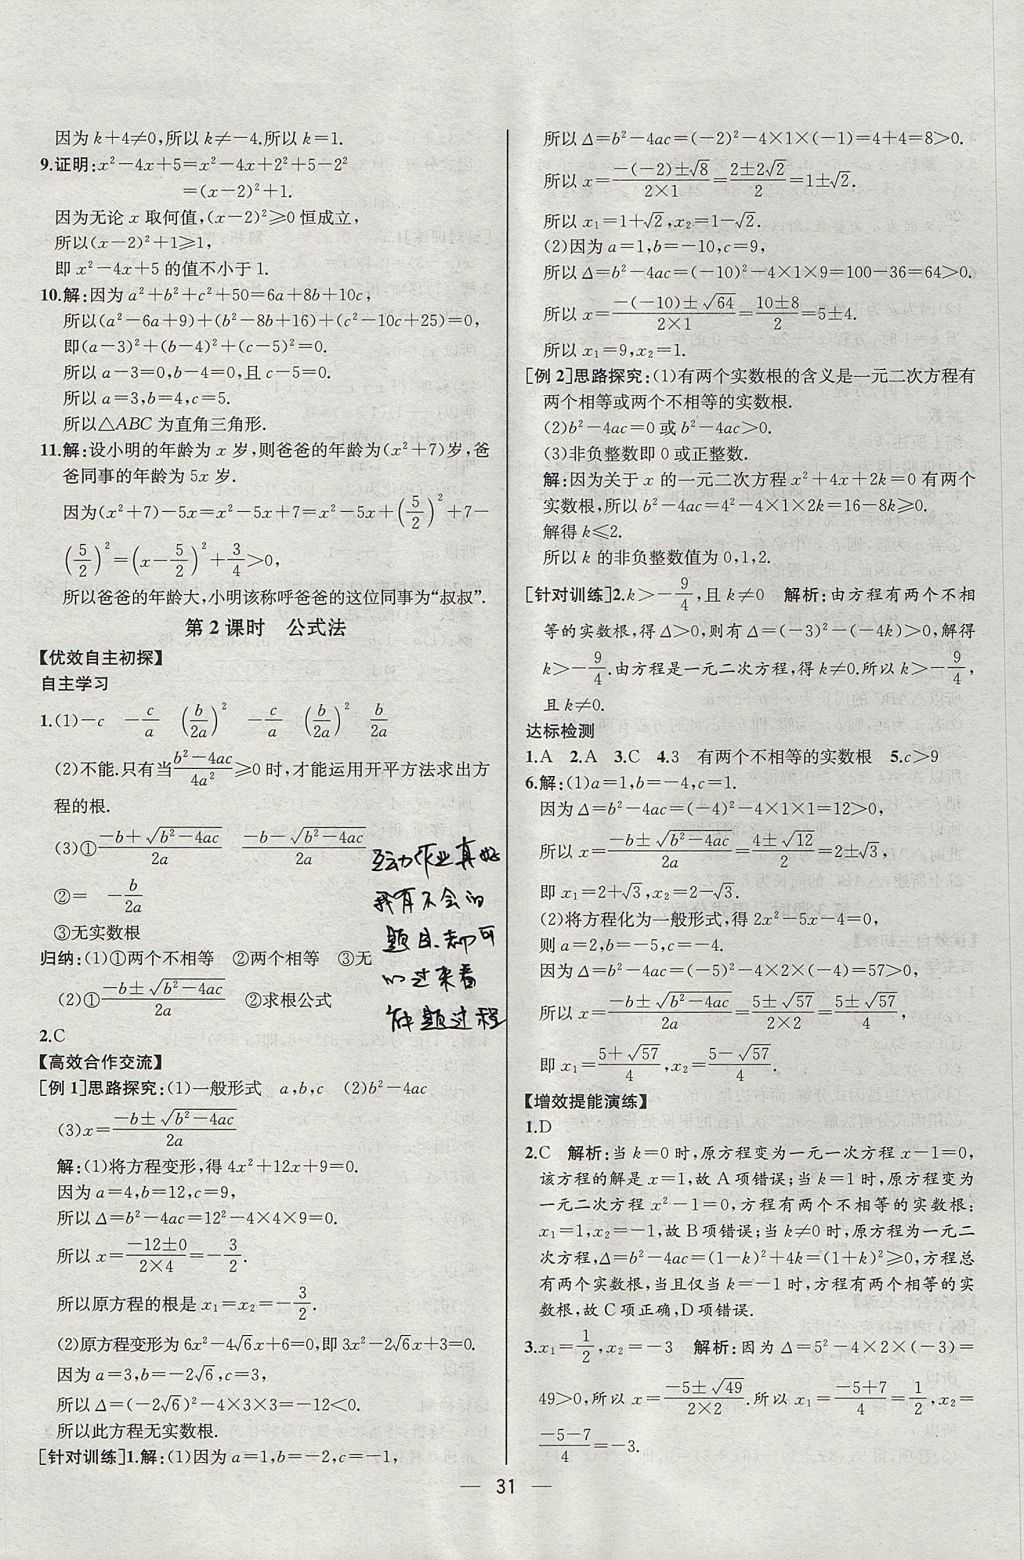 因为k+4≠0,所以k≠-4.所以k=1.
9.证明:x²-4x+5=x²-4x+2²+5-2²
=(x-2)²+1.
因为无论 x 取何值,(x-2)²≥0 恒成立,
所以(x-2)²+1≥1,
即 x²-4x+5 的值不小于 1.
10.解:因为 a²+b²+c²+50=6a+8b+10c,
所以(a²-6a+9)+(b²-8b+16)+(c²-10c+25)=0,
即(a-3)²+(b-4)²+(c-5)²=0.
所以 a-3=0,b-4=0,且 c-5=0.
所以 a=3,b=4,c=5.
所以△ABC 为直角三角形.
11.解:设小明的年龄为 x 岁,则爸爸的年龄为(x²+7)岁,爸
爸同事的年龄为 5x 岁.
因为(x²+7)-5x=x²-5x+7=x²-5x+(5/2)²+7-
(5/2)²=(x-5/2)²+3/4>0,
所以爸爸的年龄大,小明该称呼爸爸的这位同事为“叔叔”.
第 2 课时 公式法
【优效自主初探】
自主学习
1.(1)-c -c/a (b/2a)² -c/a (b/2a)² b/2a
(2)不能.只有当(b²-4ac)/4a²≥0 时,才能运用开平方法求出方
程的根.
(3)①(-b+√(b²-4ac))/2a (-b-√(b²-4ac))/2a
②= -b/2a
③无实数根
归纳:(1)①两个不相等 ②两个相等 ③无
(2)①(-b±√(b²-4ac))/2a ②求根公式
2.C
互动作业真好
我有不会的
题目,都可
以过来看
解题过程
【高效合作交流】
[例 1]思路探究:(1)一般形式 a,b,c (2)b²-4ac
(3)x=(-b±√(b²-4ac))/2a
解:(1)将方程变形,得 4x²+12x+9=0.
因为 a=4,b=12,c=9,
所以 Δ=b²-4ac=12²-4×4×9=0.
所以 x=(-12±0)/(2×4)=-3/2.
所以原方程的根是 x₁=x₂=-3/2.
(2)原方程变形为 6x²-4√6x+6=0,即 3x²-2√6x+3=0.
因为 a=3,b=-2√6,c=3,
所以 Δ=(-2√6)²-4×3×3=-12<0.
所以此方程无实数根.
[针对训练]1.解:(1)因为 a=1,b=-2,c=-1,
所以 Δ=b²-4ac=(-2)²-4×1×(-1)=4+4=8>0.
所以 x=(-(-2)±√8)/(2×1)=(2±2√2)/2=1±√2.
所以 x₁=1+√2,x₂=1-√2.
(2)因为 a=1,b=-10,c=9,
所以 Δ=b²-4ac=(-10)²-4×1×9=100-36=64>0.
所以 x=(-(-10)±√64)/(2×1)=(10±8)/2=5±4.
所以 x₁=9,x₂=1.
[例 2]思路探究:(1)有两个实数根的含义是一元二次方程有
两个相等或两个不相等的实数根.
(2)b²-4ac=0 或 b²-4ac>0.
(3)非负整数即 0 或正整数.
解:因为关于 x 的一元二次方程 x²+4x+2k=0 有两个
实数根,所以 b²-4ac=4²-4×1×2k=16-8k≥0.
解得 k≤2.
所以 k 的非负整数值为 0,1,2.
[针对训练]2.k>-9/4,且 k≠0 解析:由方程有两个不相
等的实数根,得 Δ>0,则 Δ=(-3)²-(-4k)>0,解得
k>-9/4.由方程是一元二次方程,得 k≠0.所以 k>-9/4,
且 k≠0.
达标检测
1.A 2.A 3.C 4.3 有两个不相等的实数根 5.c>9
6.解:(1)a=1,b=-4,c=1.
因为 Δ=b²-4ac=(-4)²-4×1×1=12>0,
所以 x=(-b±√(b²-4ac))/2a=(4±√12)/2=2±√3,
即 x₁=2+√3,x₂=2-√3.
(2)将方程化为一般形式,得 2x²-5x-4=0,
则 a=2,b=-5,c=-4.
因为 Δ=b²-4ac=(-5)²-4×2×(-4)=57>0,
所以 x=(-b±√(b²-4ac))/2a=(5±√57)/(2×2)=(5±√57)/4,
即 x₁=(5+√57)/4,x₂=(5-√57)/4.
【增效提能演练】
1.D
2.C 解析:当 k=0 时,原方程变为一元一次方程 x-1=0,
该方程的解是 x=1,故 A 项错误;当 k=1 时,原方程变为
一元二次方程 x²-1=0,方程有两个不相等的实数根:
x₁=1,x₂=-1,故 B 项错误;当 k≠0 时,原方程为一元二
次方程,Δ=b²-4ac=(1-k)²+4k=(1+k)²≥0,方程总
有两个实数根,当且仅当 k=-1 时,方程有两个相等的实
数根,故 C 项正确,D 项错误.
3.x₁=1/2,x₂=-3 解析:因为 Δ=5²-4×2×(-3)=
49>0,所以 x=(-5±√49)/(2×2).所以 x₁=(-5+7)/4=1/2,x₂=
(-5-7)/4=-3.
— 31 —